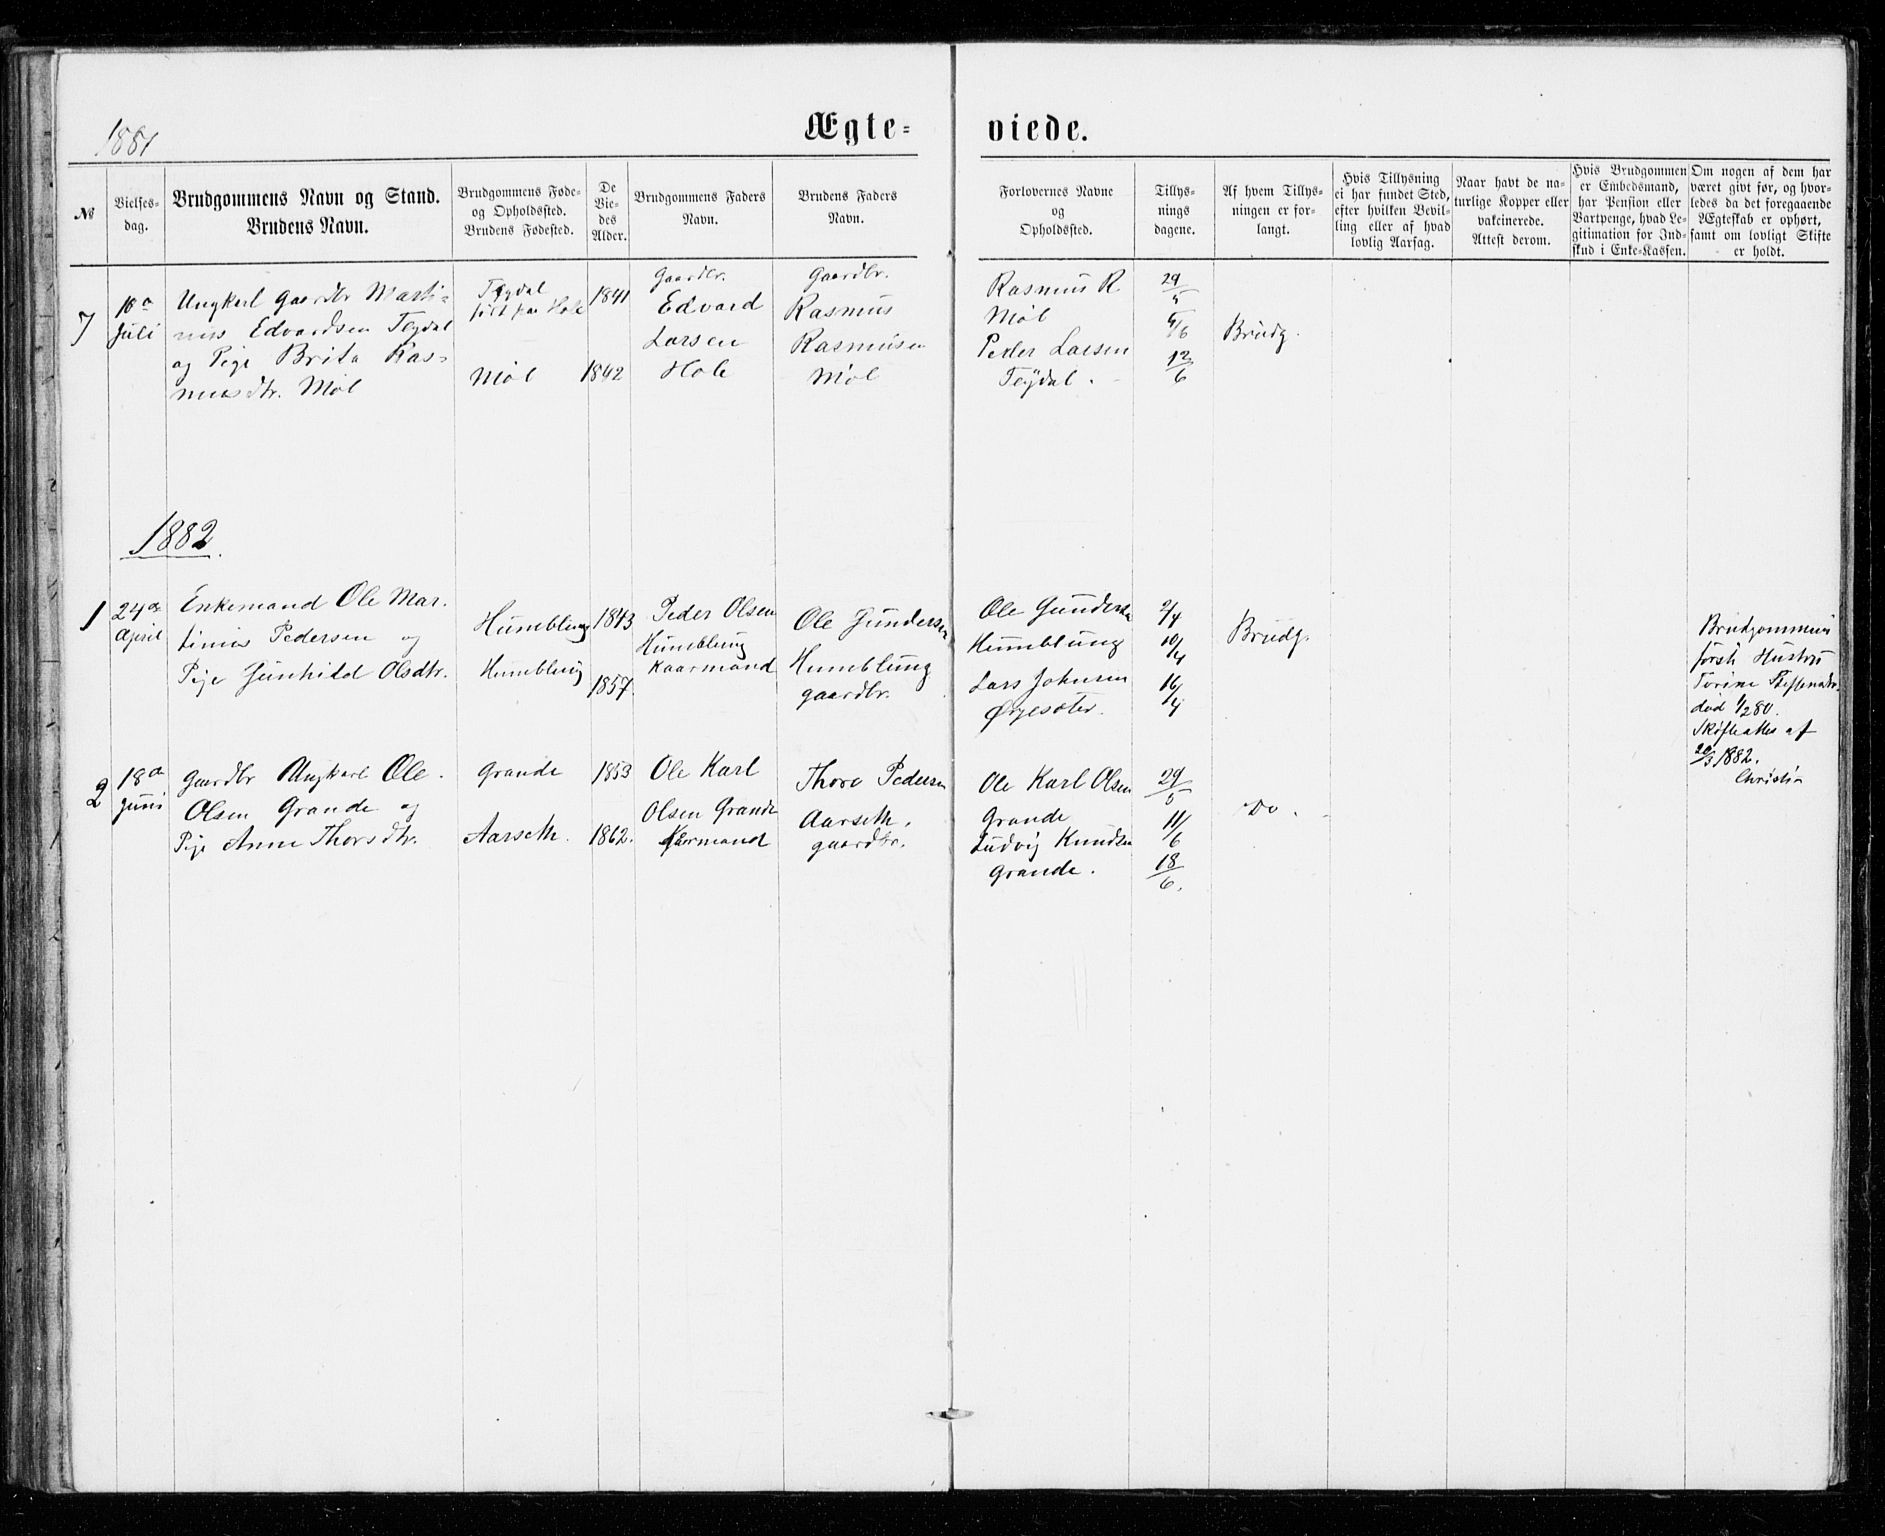 1881
Ægte=
viede.
№
Vielses-
dag.
Brudgommens Navn og Stand.
Brudens Navn.
Brudgommens Føde-
og Opholdssted.
Brudens Fødested.
De
Vie-
des
Alder.
Brudgommens Faders
Navn.
Brudens Faders
Navn.
Forlovernes Navne
og
Opholdssted.
Tillys-
nings
dagene.
Af hvem Tillys-
ningen er for-
langt.
Hvis Tillysning
ei har fundet Sted,
efter hvilken Bevil-
ling eller af hvad
lovlig Aarsag.
Naar havt de na-
turlige Kopper eller
vakcinerede.
Attest derom.
Hvis Brudgommen
er Embedsmand,
har Pension eller
Vartpenge, hvad Le-
gitimation for Ind-
skud i Enke-Kassen.
Om nogen af dem har
været givt før, og hvor-
ledes da det foregaaende
Ægteskab er ophørt,
samt om lovligt Skifte
er holdt.
7
Juli
Ungkarl Gaardbr Marti-
nus Edvardsen
og Pige Brita Ras-
musdtr. Møl
Møl
1841
1842
Gaardbr.
Edvard
Larsen
Hole
Gaardbr.
Rasmus
Rasmusen
Møl
Rasmus R
Møl
Peder Larsen
29/5
5/6
12/6
Brudg.
1882.
1
24de
April
Enkemand Ole Mar-
tinus Pedersen og
Pige Gunhild Olsdtr.
Humblung
Humblung
1843
1857.
Peder Olsen
Humblung
Kaarmand
Ole Gundersen
Humblung
gaardbr.
Ole Gundersen
Humblung
Lars Johnsen
2/4
10/4
16/4
Brudg.
Brudgommens
første Hustru
død 1/2 80.
af
1882.
2
18de
Juni
Gaardbr Ungkarl Ole
Olsen Grande og
Pige Anne Thorsdtr.
Grande
Aarseth.
1853
1862.
Ole Karl
Olsen Grande
Kaarmand
Thore Pedersen
Aarseth.
gaardbr.
Ole Karl Olsen
Grande
Ludvig Knudsen
Grande.
29/5
11/6
18/6.
Do.